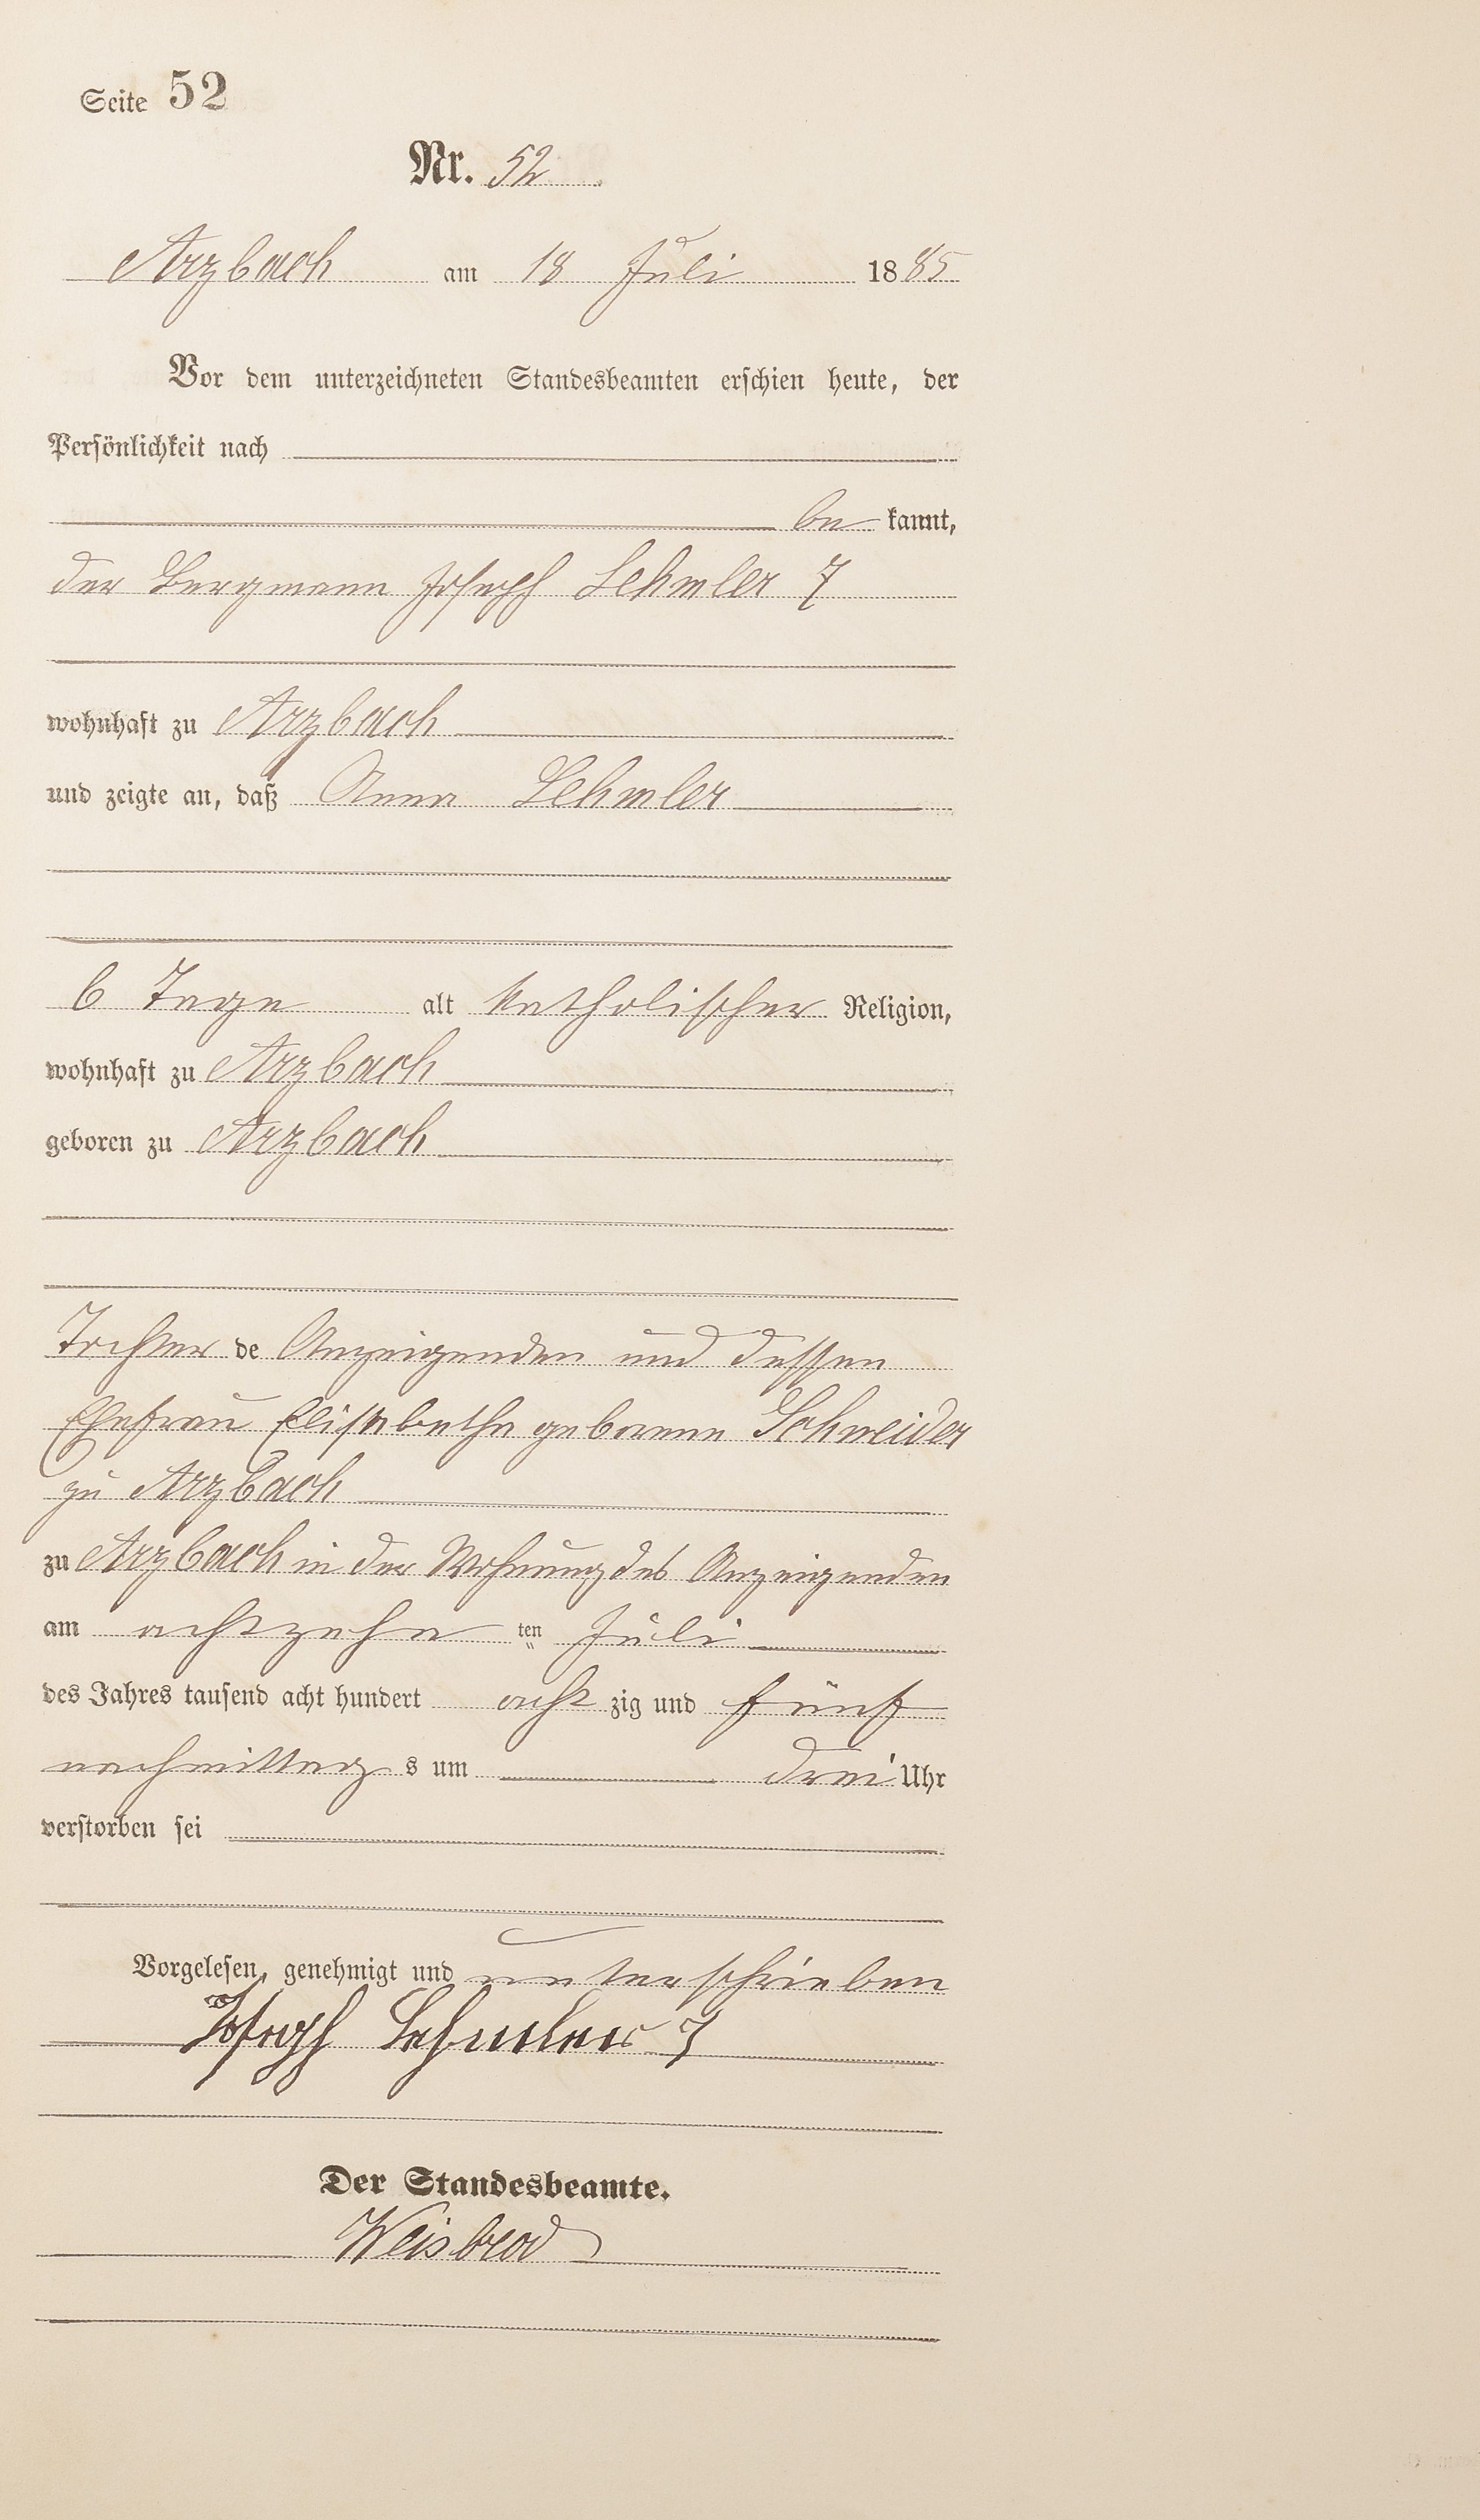 Seite 52
Nr. 52
Arzbach am 18 Juli 1885
Vor dem unterzeichneten Standesbeamten erschien heute, der
Persönlichkeit nach
be kannt,
der Bergmann Joseph Lehmler 7
wohnhaft zu Arzbach
und zeigte an, daß Anna Lehmler
6 Tage alt katholischer Religion,
wohnhaft zu Arzbach
geboren zu Arzbach
Tochter de Anzeigenden und dessen
Ehefrau Elisabetha geborene Schneider
zu Arzbach
zu Arzbach in der Wohnung des Anzeigenden
am achtzehn ten Juli
des Jahres tausend acht hundert acht zig und fünf
nachmittag s um drei Uhr
verstorben sei
Vorgelesen, genehmigt und unterschrieben
Joseph Lehmler 7
Der Standesbeamte.
Weisbrod